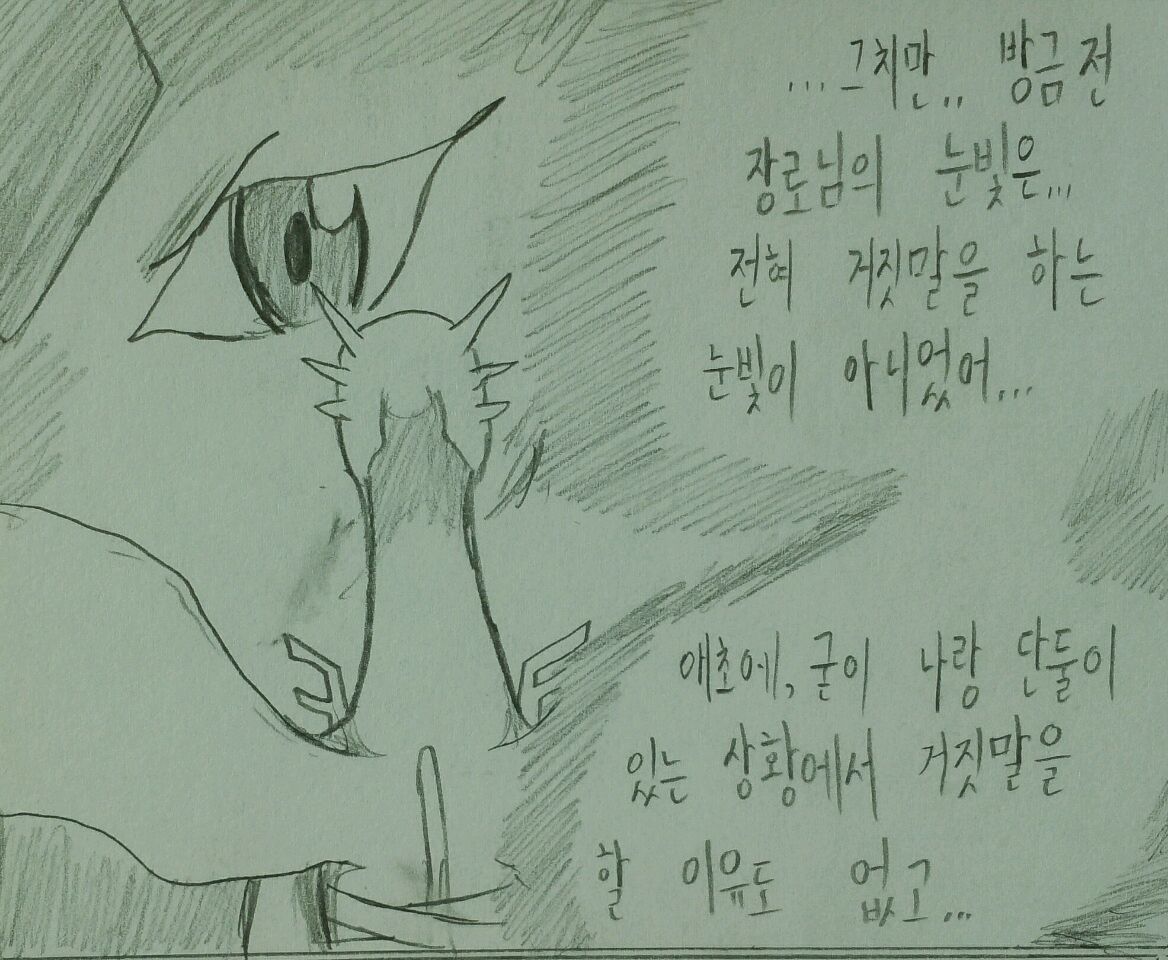 ...그치만.. 방금 전
장로님의 눈빛은...
전혀 거짓말을 하는
눈빛이 아니었어...
애초에, 굳이 나랑 단둘이
있는 상황에서 거짓말을
할 이유도 없고...